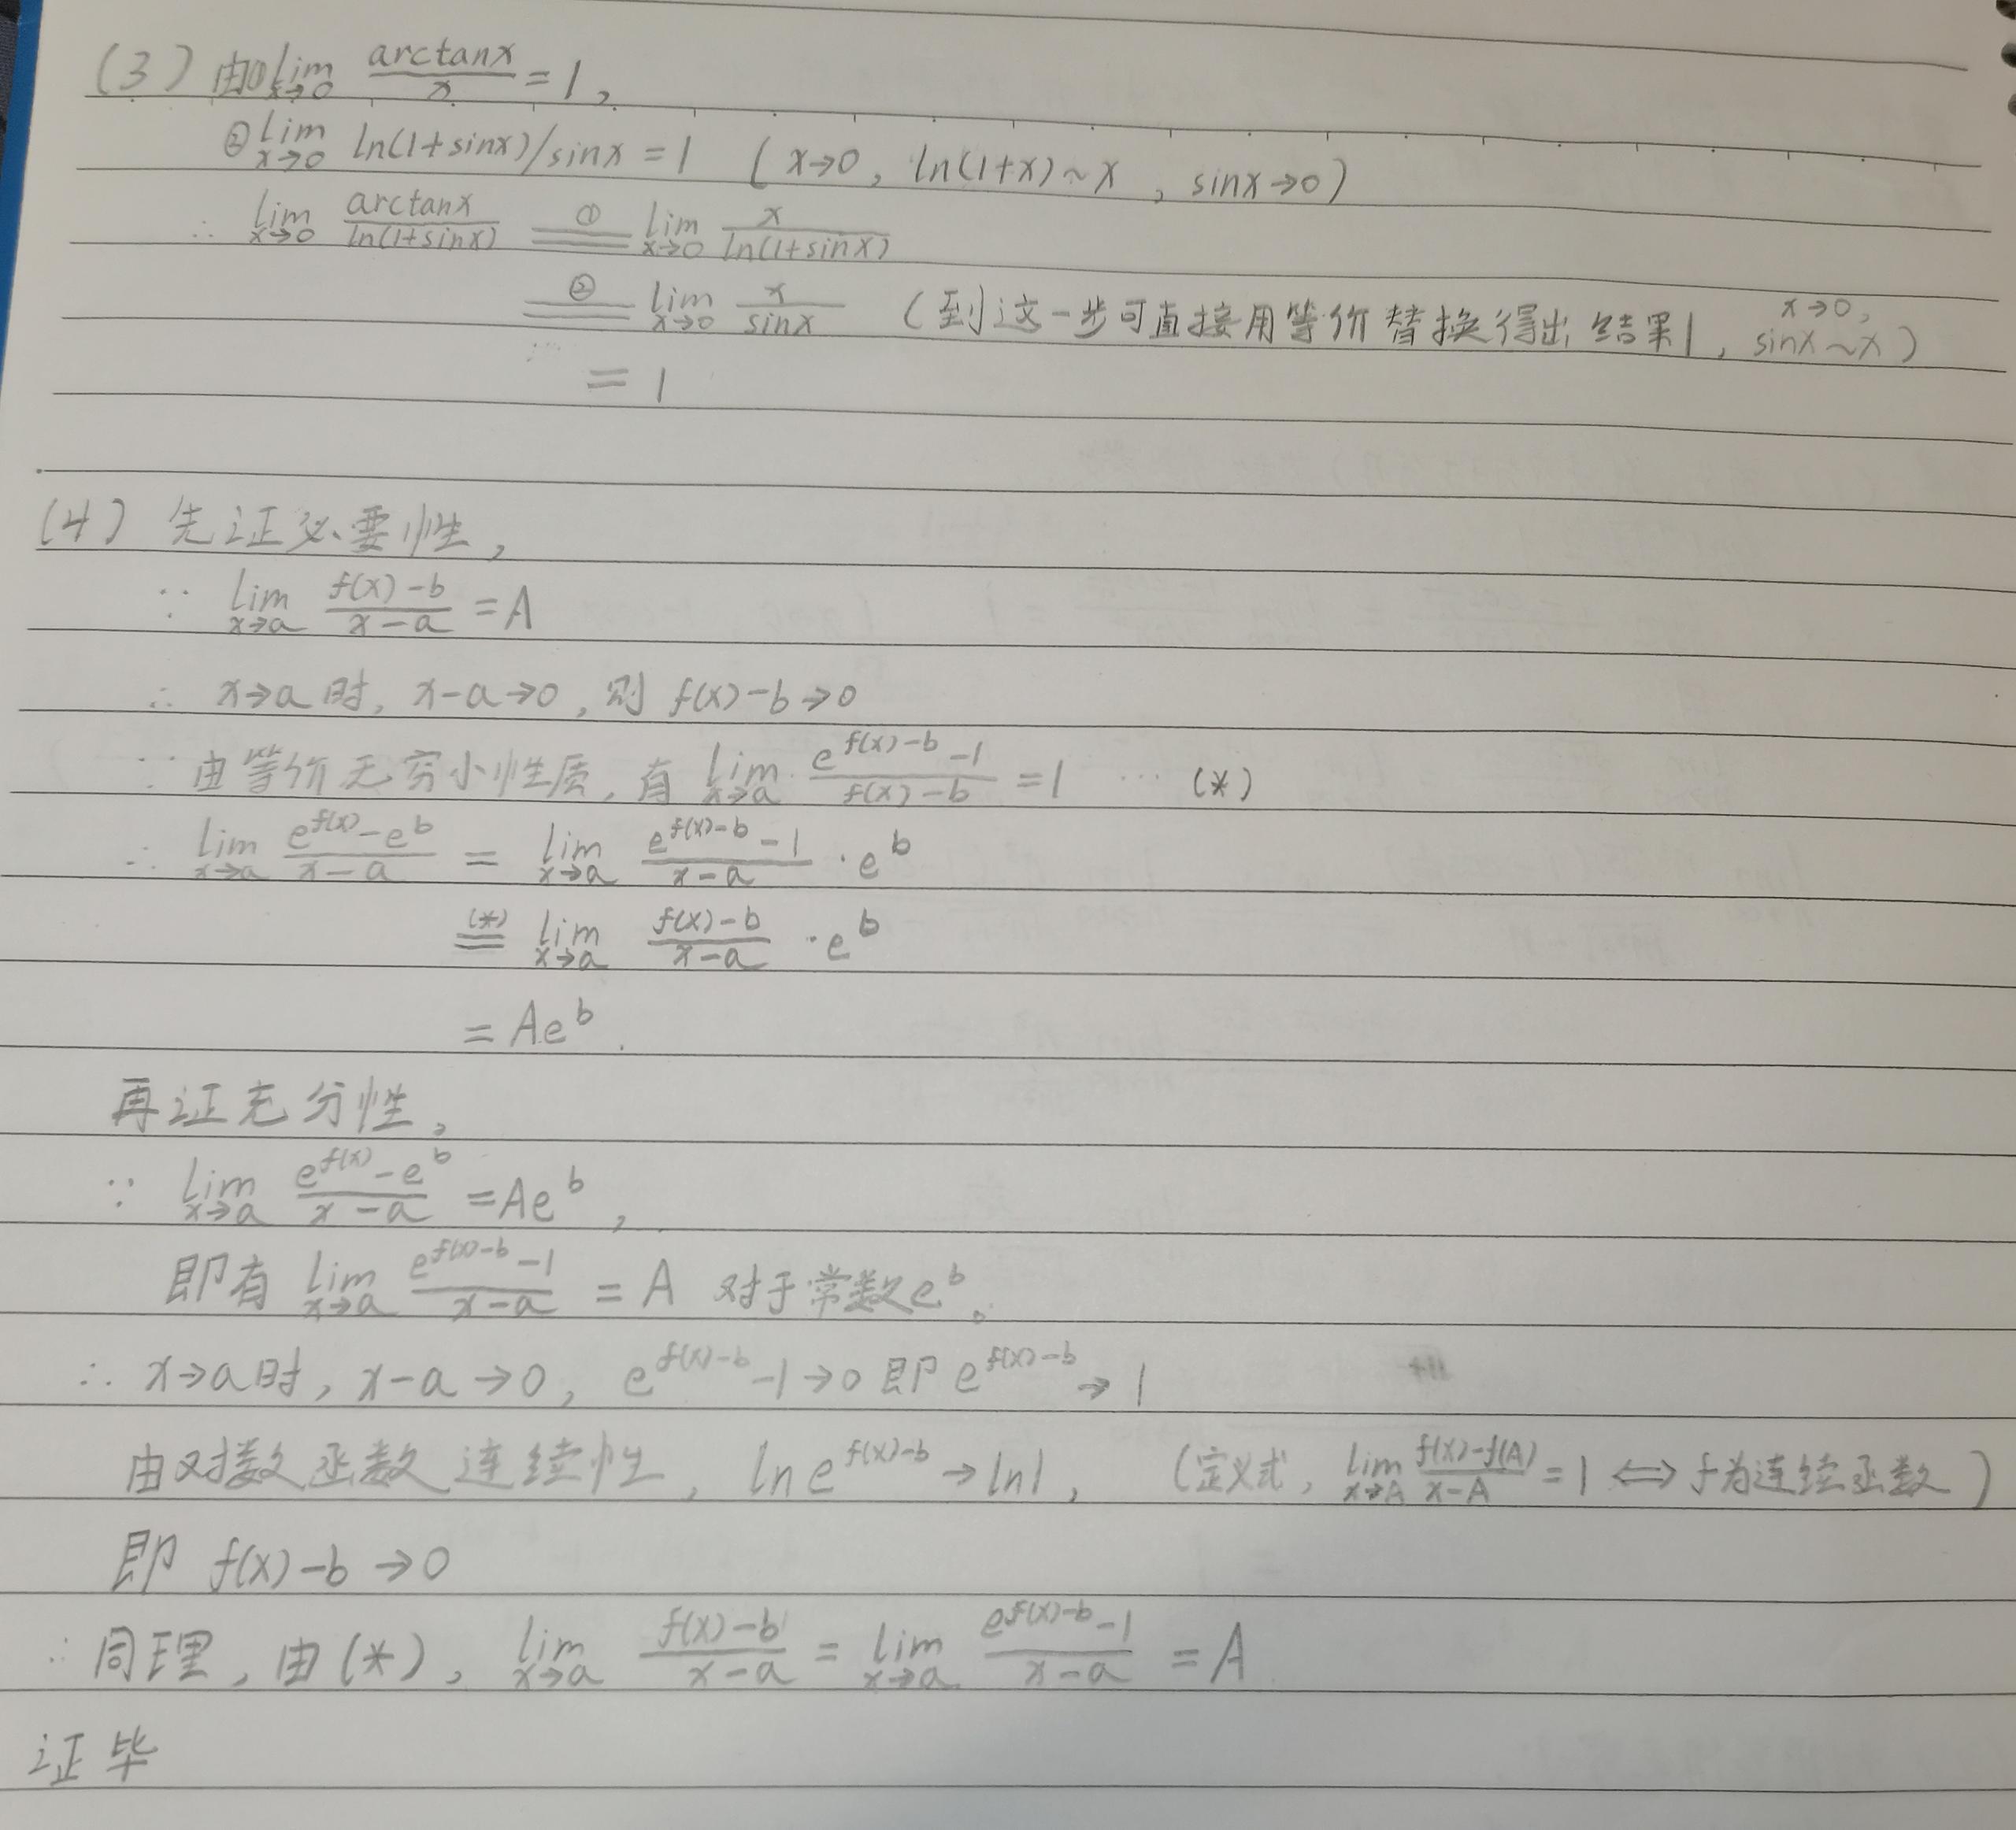 (3) 由①lim x→0 arctanx/x = 1,
②lim x→0 ln(1+sinx)/sinx = 1 (x→0, ln(1+x)~x, sinx→0)
∴ lim x→0 arctanx/ln(1+sinx) ①== lim x→0 x/ln(1+sinx)
②== lim x→0 x/sinx (到这一步可直接用等价替换得出结果1, x→0, sinx~x)
= 1
(4) 先证必要性,
∵ lim x→a (f(x)-b)/(x-a) = A
∴ x→a时, x-a→0, 则 f(x)-b→0
∵ 由等价无穷小性质, 有 lim x→a (e^{f(x)-b}-1)/(f(x)-b) = 1 … (*)
∴ lim x→a (e^{f(x)}-e^b)/(x-a) = lim x→a (e^{f(x)-b}-1)/(x-a) · e^b
(*)== lim x→a (f(x)-b)/(x-a) · e^b
= Ae^b.
再证充分性,
∵ lim x→a (e^{f(x)}-e^b)/(x-a) = Ae^b,
即有 lim x→a (e^{f(x)-b}-1)/(x-a) = A 对于常数e^b。
∴ x→a时, x-a→0, e^{f(x)-b}-1→0 即 e^{f(x)-b}→1
由对数函数连续性, ln e^{f(x)-b}→ln1, (定义式, lim x→A (f(x)-f(A))/(x-A) = 1 ⇔ f为连续函数)
即 f(x)-b→0
∴ 同理, 由(*), lim x→a (f(x)-b)/(x-a) = lim x→a (e^{f(x)-b}-1)/(x-a) = A
证毕